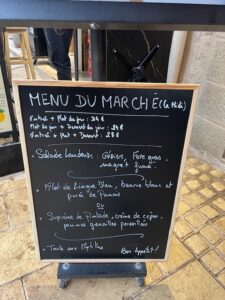 MENU DU MARCHÉ (le midi)
Entrée + Plat du jour : 24 €
Plat du jour + Dessert du jour : 24 €
Entrée + Plat + Dessert : 28 €
Salade Landaise : Gésiers, Foie gras,
magret fumé.
Filet de Lingue bleu, beurre blanc et
purée de Panais
Ou
Suprême de Pintade, crème de cèpes,
pommes grenailles persillées
Tarte aux Myrtilles
Bon Appétit !